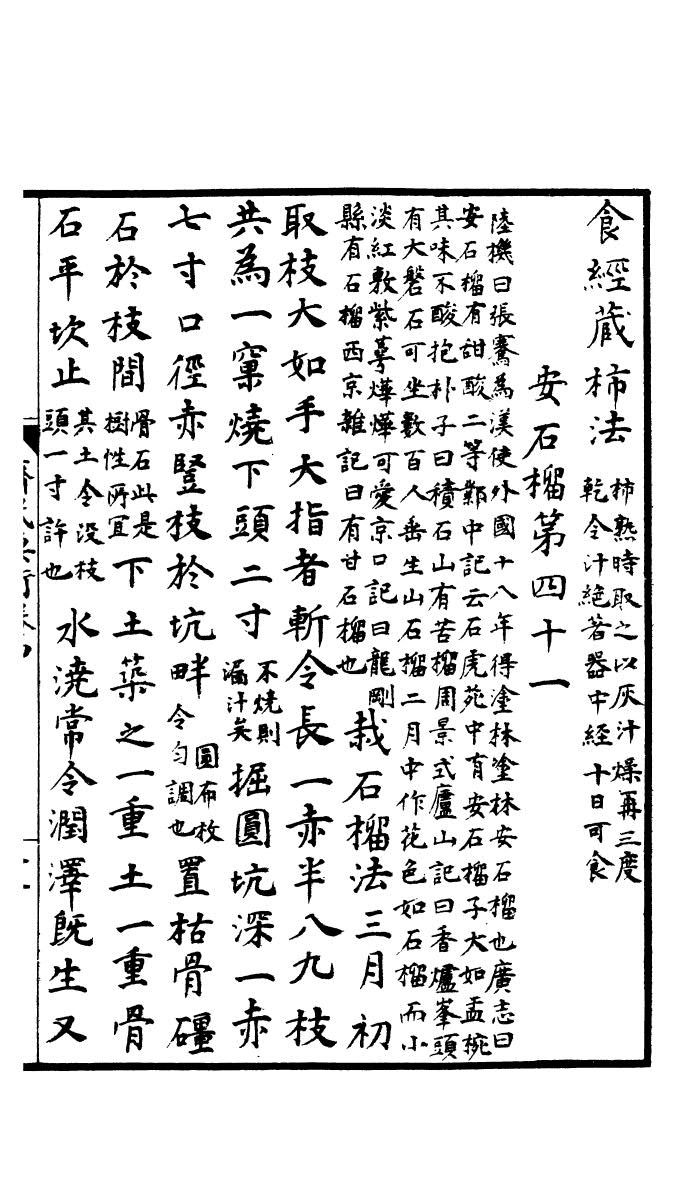 食經蔵柿法柿熟時取之以灰汁燥再三度乾令汁絶著器中經十日可食
安石榴第四十一
陸機曰張騫為漢使外國十八年得塗林塗林安石榴也廣志曰
安石榴有甜酸二等鄴中記云石虎苑中有安石榴子大如盂椀
其味不酸抱朴子曰積石山有苦榴周景式廬山記曰香爐峯頭
有大磐石可坐數百人垂生山石榴二月中作花色如石榴而小
淡紅敷紫萼燁燁可愛京口記曰龍剛
縣有石榴西京雜記曰有甘石榴也
栽石榴法三月初
取枝大如手大指者斬令長一赤半八九枝
共為一窠燒下頭二寸不燒則漏汁矣掘圓坑深一赤
七寸口徑赤豎枝於坑畔圓布枚令匀調也置枯骨礓
石於枝間骨石此是樹性所宜下土築之一重土一重骨
石平坎止其土令没枝頭一寸許也水澆常令潤澤旣生又